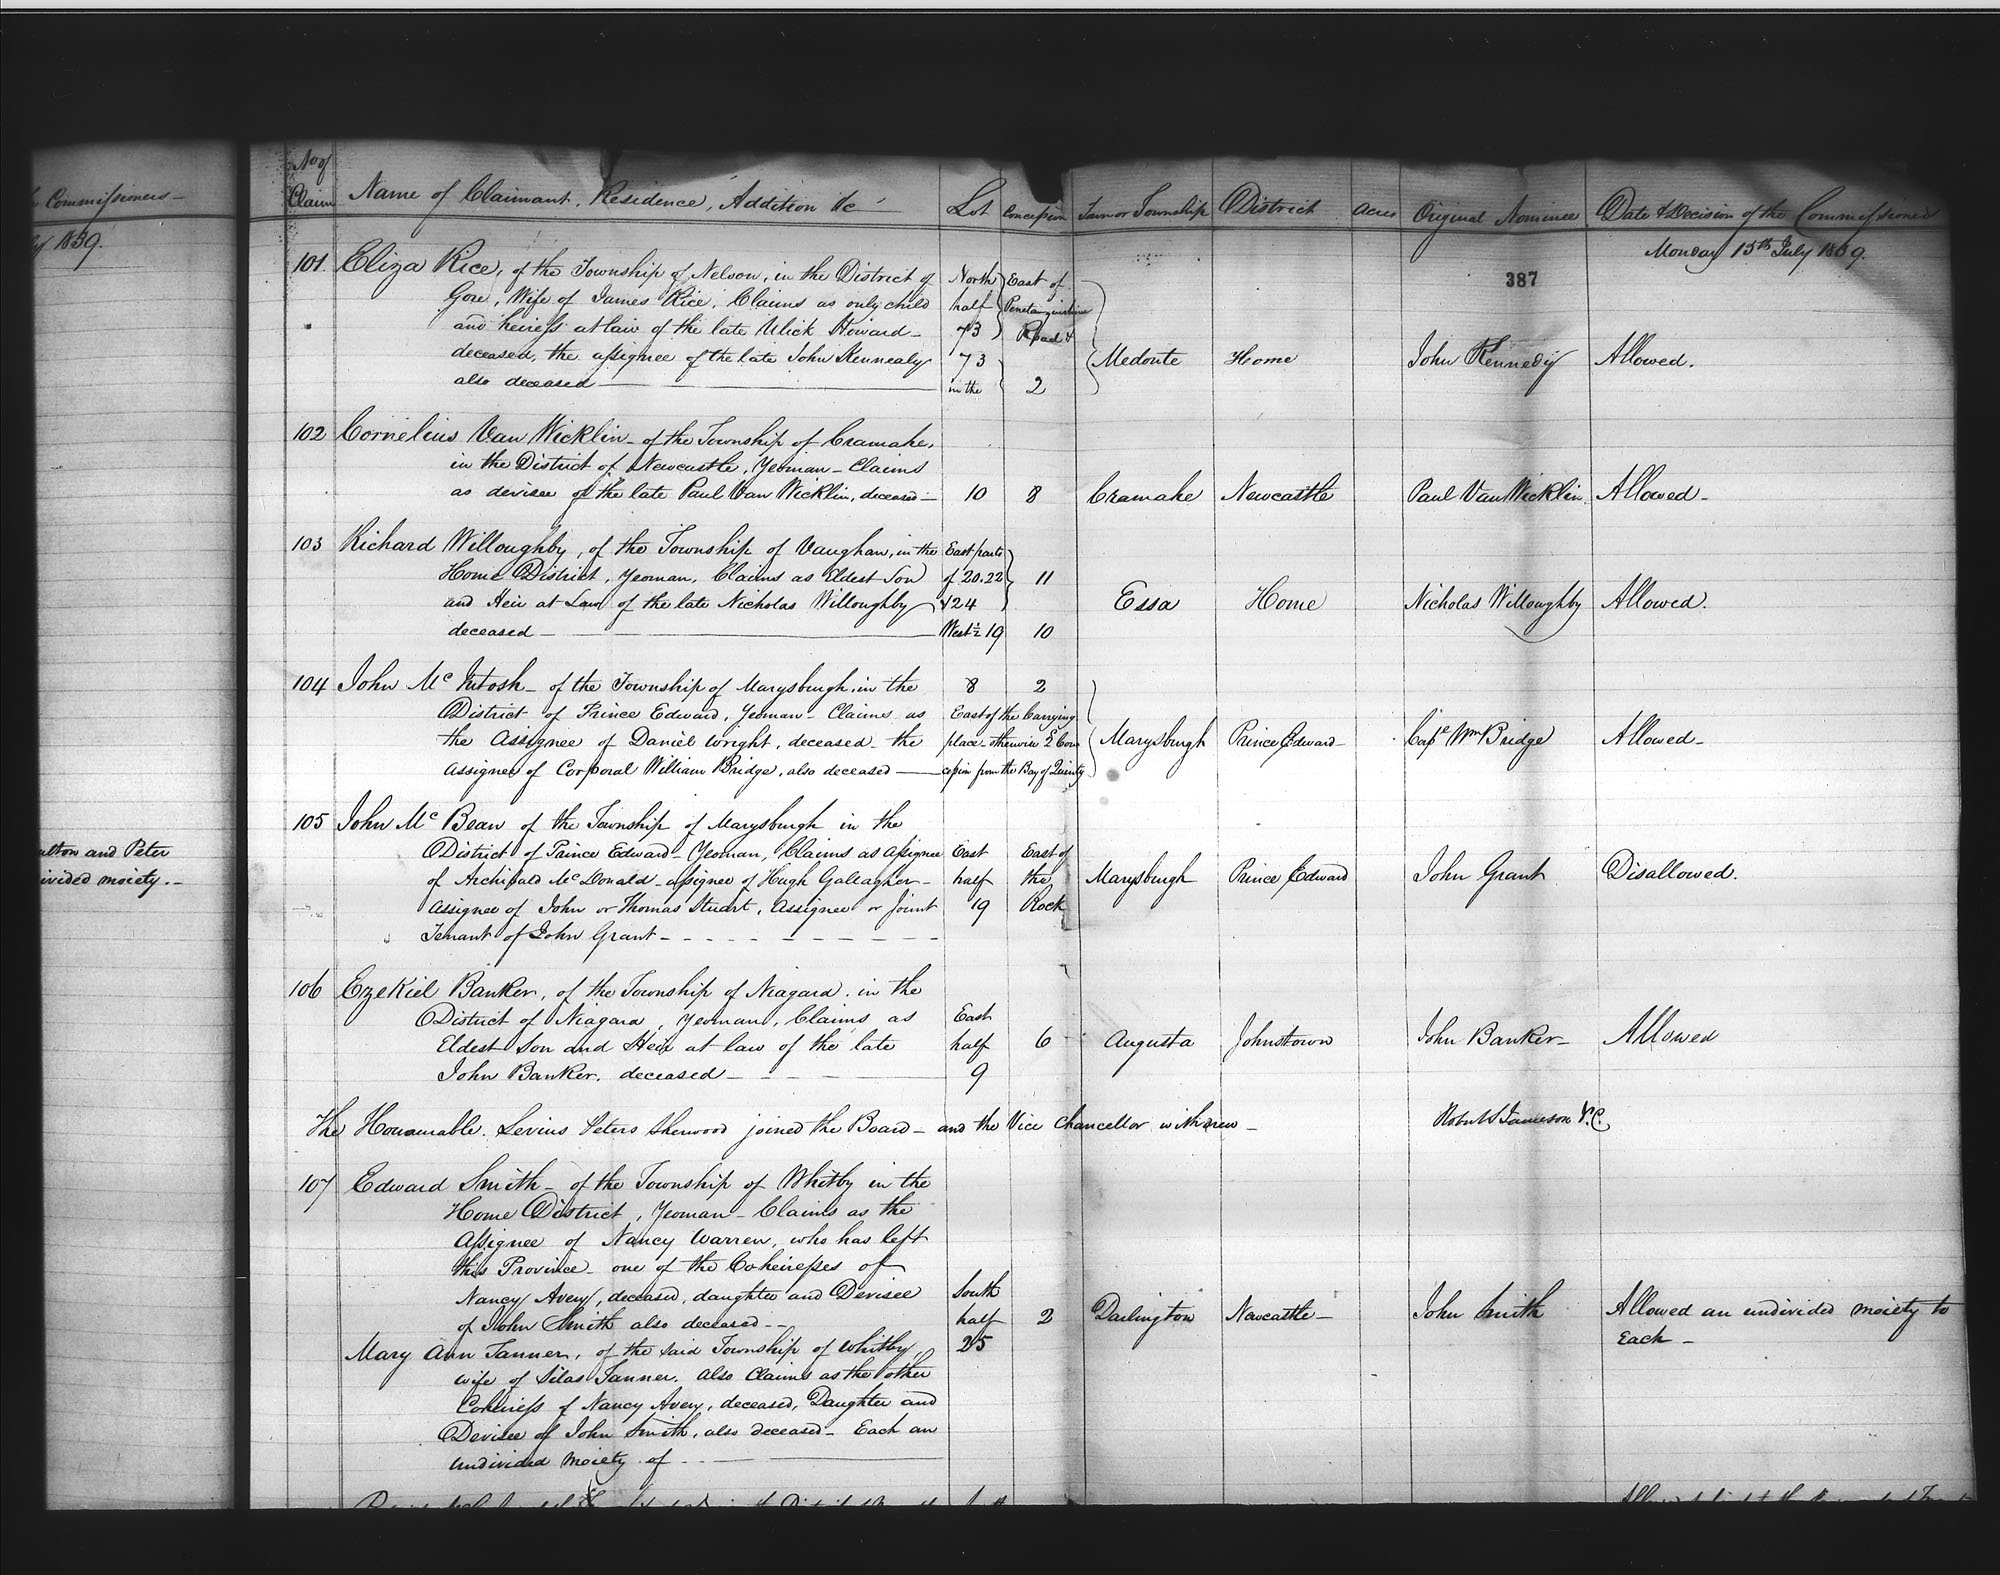 Commissioners
1839.
ulton and Peter
ivided moiety.
No of
Claim Name of Claimant, Residence, Addition &c Lot Concession Town or Township District Acres Original Nominee Date & Decision of the Commissioners
Monday 15th July 1839.
387
101. Eliza Rice, of the Township of Nelson, in the District of North East of
Gore, Wife of James Rice, Claims as only child half Penetanguishine
and heiress at law of the late Ulick Howard 73 Road &
deceased, the assignee of the late John Kennealy 73 Medonte Home John Kennedy Allowed.
also deceased in the 2
102 Cornelius Van Wicklin of the Township of Cramahe,
in the District of Newcastle, Yeoman Claims
as devisee of the late Paul Van Wicklin, deceased 10 8 Cramahe Newcastle Paul Van Wicklin Allowed
103 Richard Willoughby, of the Township of Vaughan, in the East parts
Home District, Yeoman, Claims as Eldest Son of 20.22 11
and Heir at Law of the late Nicholas Willoughby & 24 Essa Home Nicholas Willoughby Allowed.
deceased West ½ 19 10
104 John Mc Intosh of the Township of Marysburgh, in the 8 2
District of Prince Edward, Yeoman Claims as East of the Carrying
the Assignee of Daniel Wright, deceased the place otherwise 2 Con Marysburgh Prince Edward Wm Bridge Allowed
Assignee of Corporal William Bridge, also deceased cession from the Bay of Quinty
105 John Mc Bean of the Township of Marysburgh in the
District of Prince Edward Yeoman, Claims as Assignee East East of
of Archibald McDonald assignee of Hugh Gallagher half the Marysburgh Prince Edward John Grant Disallowed.
Assignee of John or Thomas Stuart, Assignee or Joint 19 Rock
Tenant of John Grant
106 Ezekiel Banker, of the Township of Niagara, in the
District of Niagara, Yeoman, Claims as East
Eldest Son and Heir at law of the late half 6 Augusta Johnstown John Banker Allowed
John Banker, deceased 9
The Honourable Levius Peters Sherwood joined the Board and the Vice Chancellor withdrew Robt S Jameson V.C.
107 Edward Smith of the Township of Whitby in the
Home District, Yeoman Claims as the
Assignee of Nancy Warren, who has left
this Province one of the Coheiresses of
Nancy Avery, deceased, daughter and Devisee South
of John Smith also deceased half 2 Darlington Newcastle John Smith Allowed an undivided moiety to
Mary Ann Tanner, of the said Township of Whitby 25 Each
wife of Silas Tanner, also Claims as the other
Coheiress of Nancy Avery, deceased, Daughter and
Devisee of John Smith, also deceased Each an
undivided moiety of